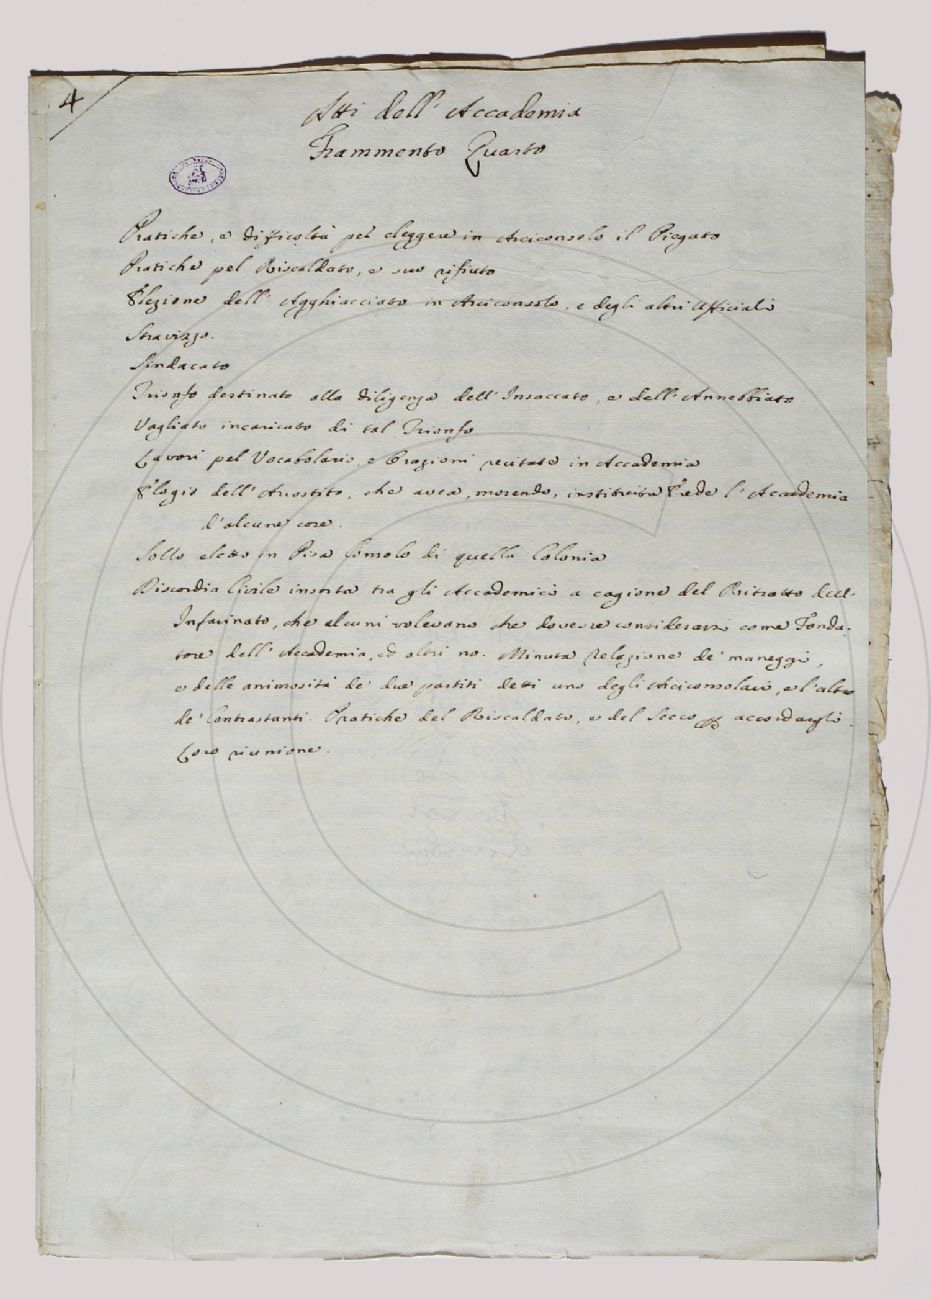 4
Atti dell' Accademia
Frammento Quarto
Pratiche, e difficoltà per eleggere in Arciconsolo il Piegato
Pratiche pel Riscaldato, e suo rifiuto
Elezione dell' Agghiacciato in Arciconsolo, e degli altri Ufficiali
Stravizzo.
Sindacato
Trionfo destinato alla diligenza dell' Insaccato, e dell' Annebbiato
Vagliato incaricato di tal Trionfo
Lavori pel Vocabolario, e Orazioni recitate in Accademia
Elogio dell' Arrostito, che avea, morendo, instituita Erede l' Accademia
d' alcune cose.
Sollo eletto in Pisa Consolo di quella Colonia
Discordia Civile insorta tra gli Accademici a cagione del Ritratto dell'
Infarinato, che alcuni volevano che dovesse considerarsi come Fonda-
tore dell' Accademia, ed altri no. Minuta Relazione de' maneggi,
e delle animosità de' due partiti detti uno degli Arciconsolari, e l' altro
de' Contrastanti. Pratiche del Riscaldato, e del Secco p accordargli.
Loro riunione.